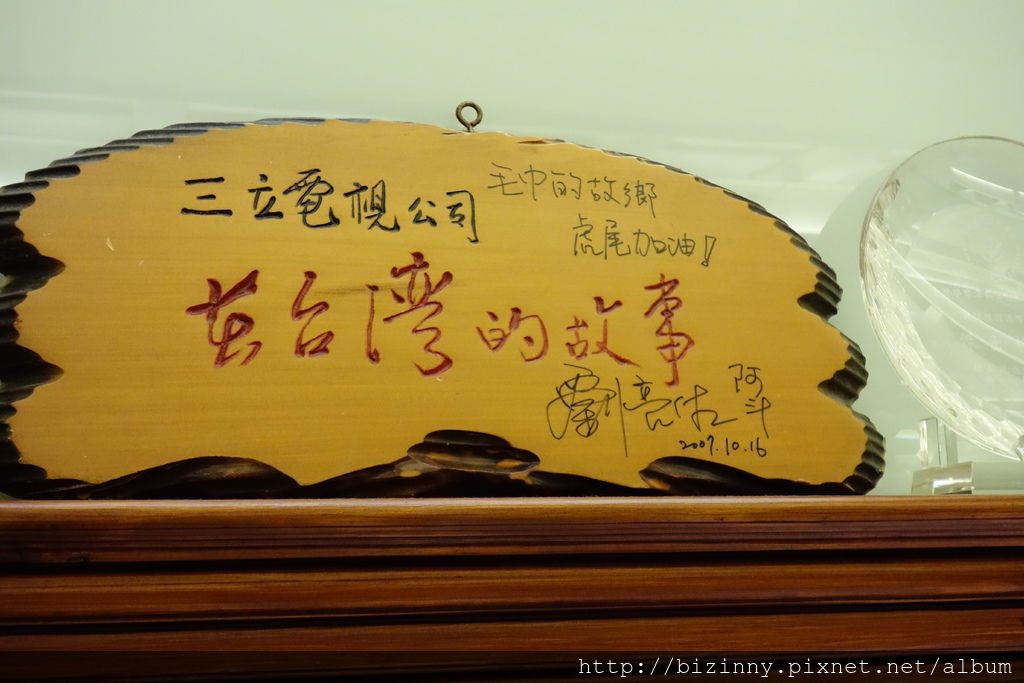 三立電視公司
毛巾的故鄉
虎尾加油!
在台灣的故事
劉亮佐
阿斗
2007.10.16
http://bizinny.pixnet.net/album